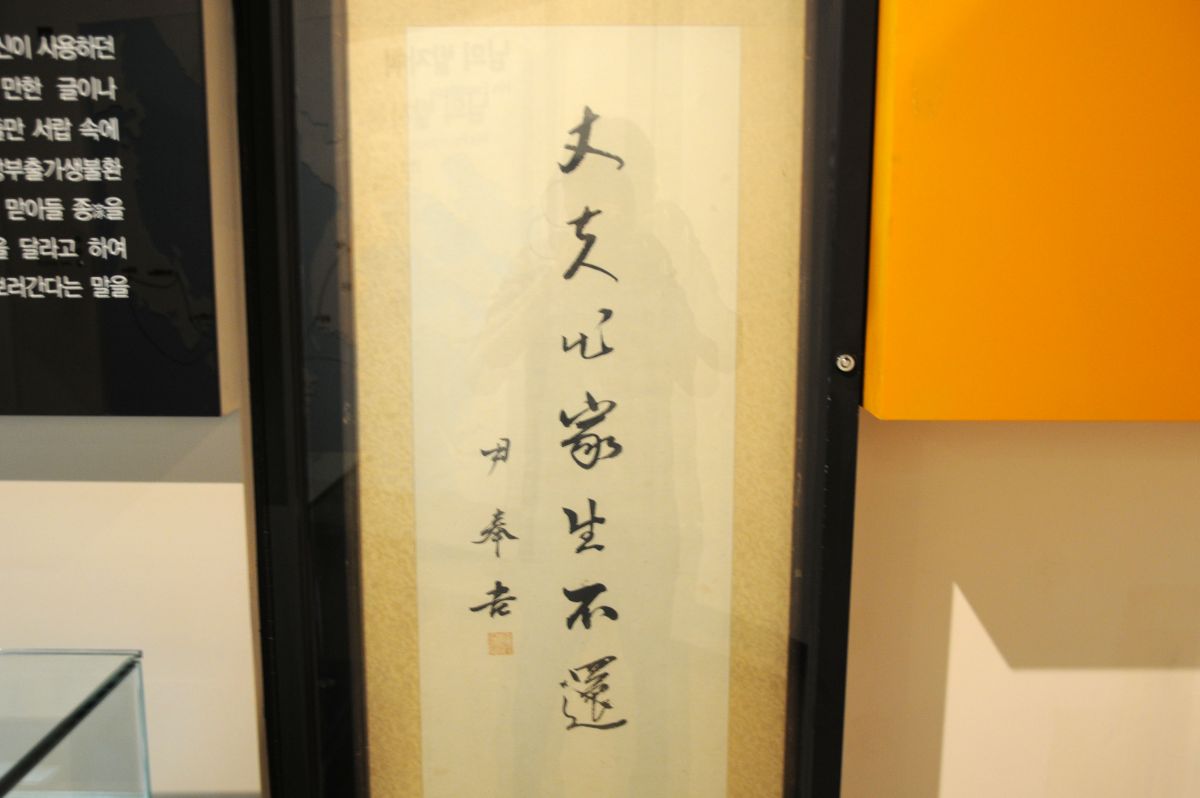 신이 사용하던
만한 글이나
들만 서랍 속에
장부출가생불환
맏아들 종淙을
을 달라고 하여
보러간다는 말을
丈夫出家生不還
尹奉吉